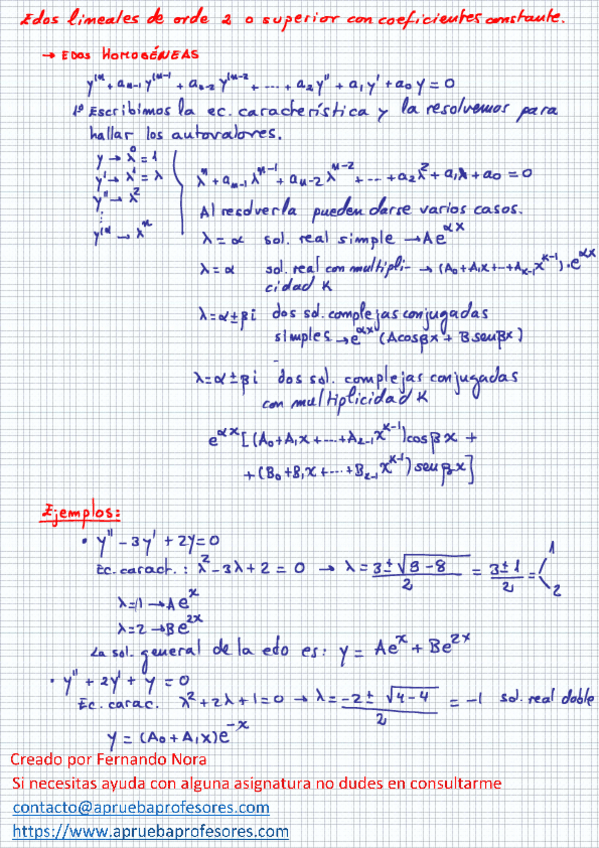 Edos lineales de orde 2 o superior con coeficientes constante.
→ EDOS HOMOGÉNEAS
y⁽ⁿ + aₙ₋₁y⁽ⁿ⁻¹ + aₙ₋₂y⁽ⁿ⁻² + ... + a₂y'' + a₁y' + a₀y = 0
1º Escribimos la ec. característica y la resolvemos para
hallar los autovalores.
y → λ⁰ = 1
y' → λ¹ = λ
y'' → λ²
⋮
y⁽ⁿ → λⁿ
λⁿ + aₙ₋₁λⁿ⁻¹ + aₙ₋₂λⁿ⁻² + ... + a₂λ² + a₁λ + a₀ = 0
Al resolverla pueden darse varios casos.
λ = α sol. real simple → Ae^αx
λ = α sol. real con multipli- → (A₀+A₁x+...+Aₖ₋₁x^k-1)·e^αx
cidad K
λ = α ± βi dos sol. complejas conjugadas
simples → e^αx (A cosβx + B senβx)
λ = α ± βi dos sol. complejas conjugadas
con multiplicidad K
e^αx [(A₀+A₁x+...+A₂₋₁x^k-1)cosβx +
+ (B₀+B₁x+...+B₂₋₁x^k-1) senβx]
Ejemplos:
• y'' - 3y' + 2y = 0
Ec. caract.: λ² - 3λ + 2 = 0 → λ = (3 ± √(9-8))/2 = (3 ± 1)/2 = < 1 2
λ = 1 → Ae^x
λ = 2 → Be^2x
La sol. general de la edo es: y = Ae^x + Be^2x
• y'' + 2y' + y = 0
Ec. carac. λ² + 2λ + 1 = 0 → λ = (-2 ± √(4-4))/2 = -1 sol. real doble
y = (A₀ + A₁x)e^-x
Creado por Fernando Nora
Si necesitas ayuda con alguna asignatura no dudes en consultarme
contacto@apruebaprofesores.com
https://www.apruebaprofesores.com